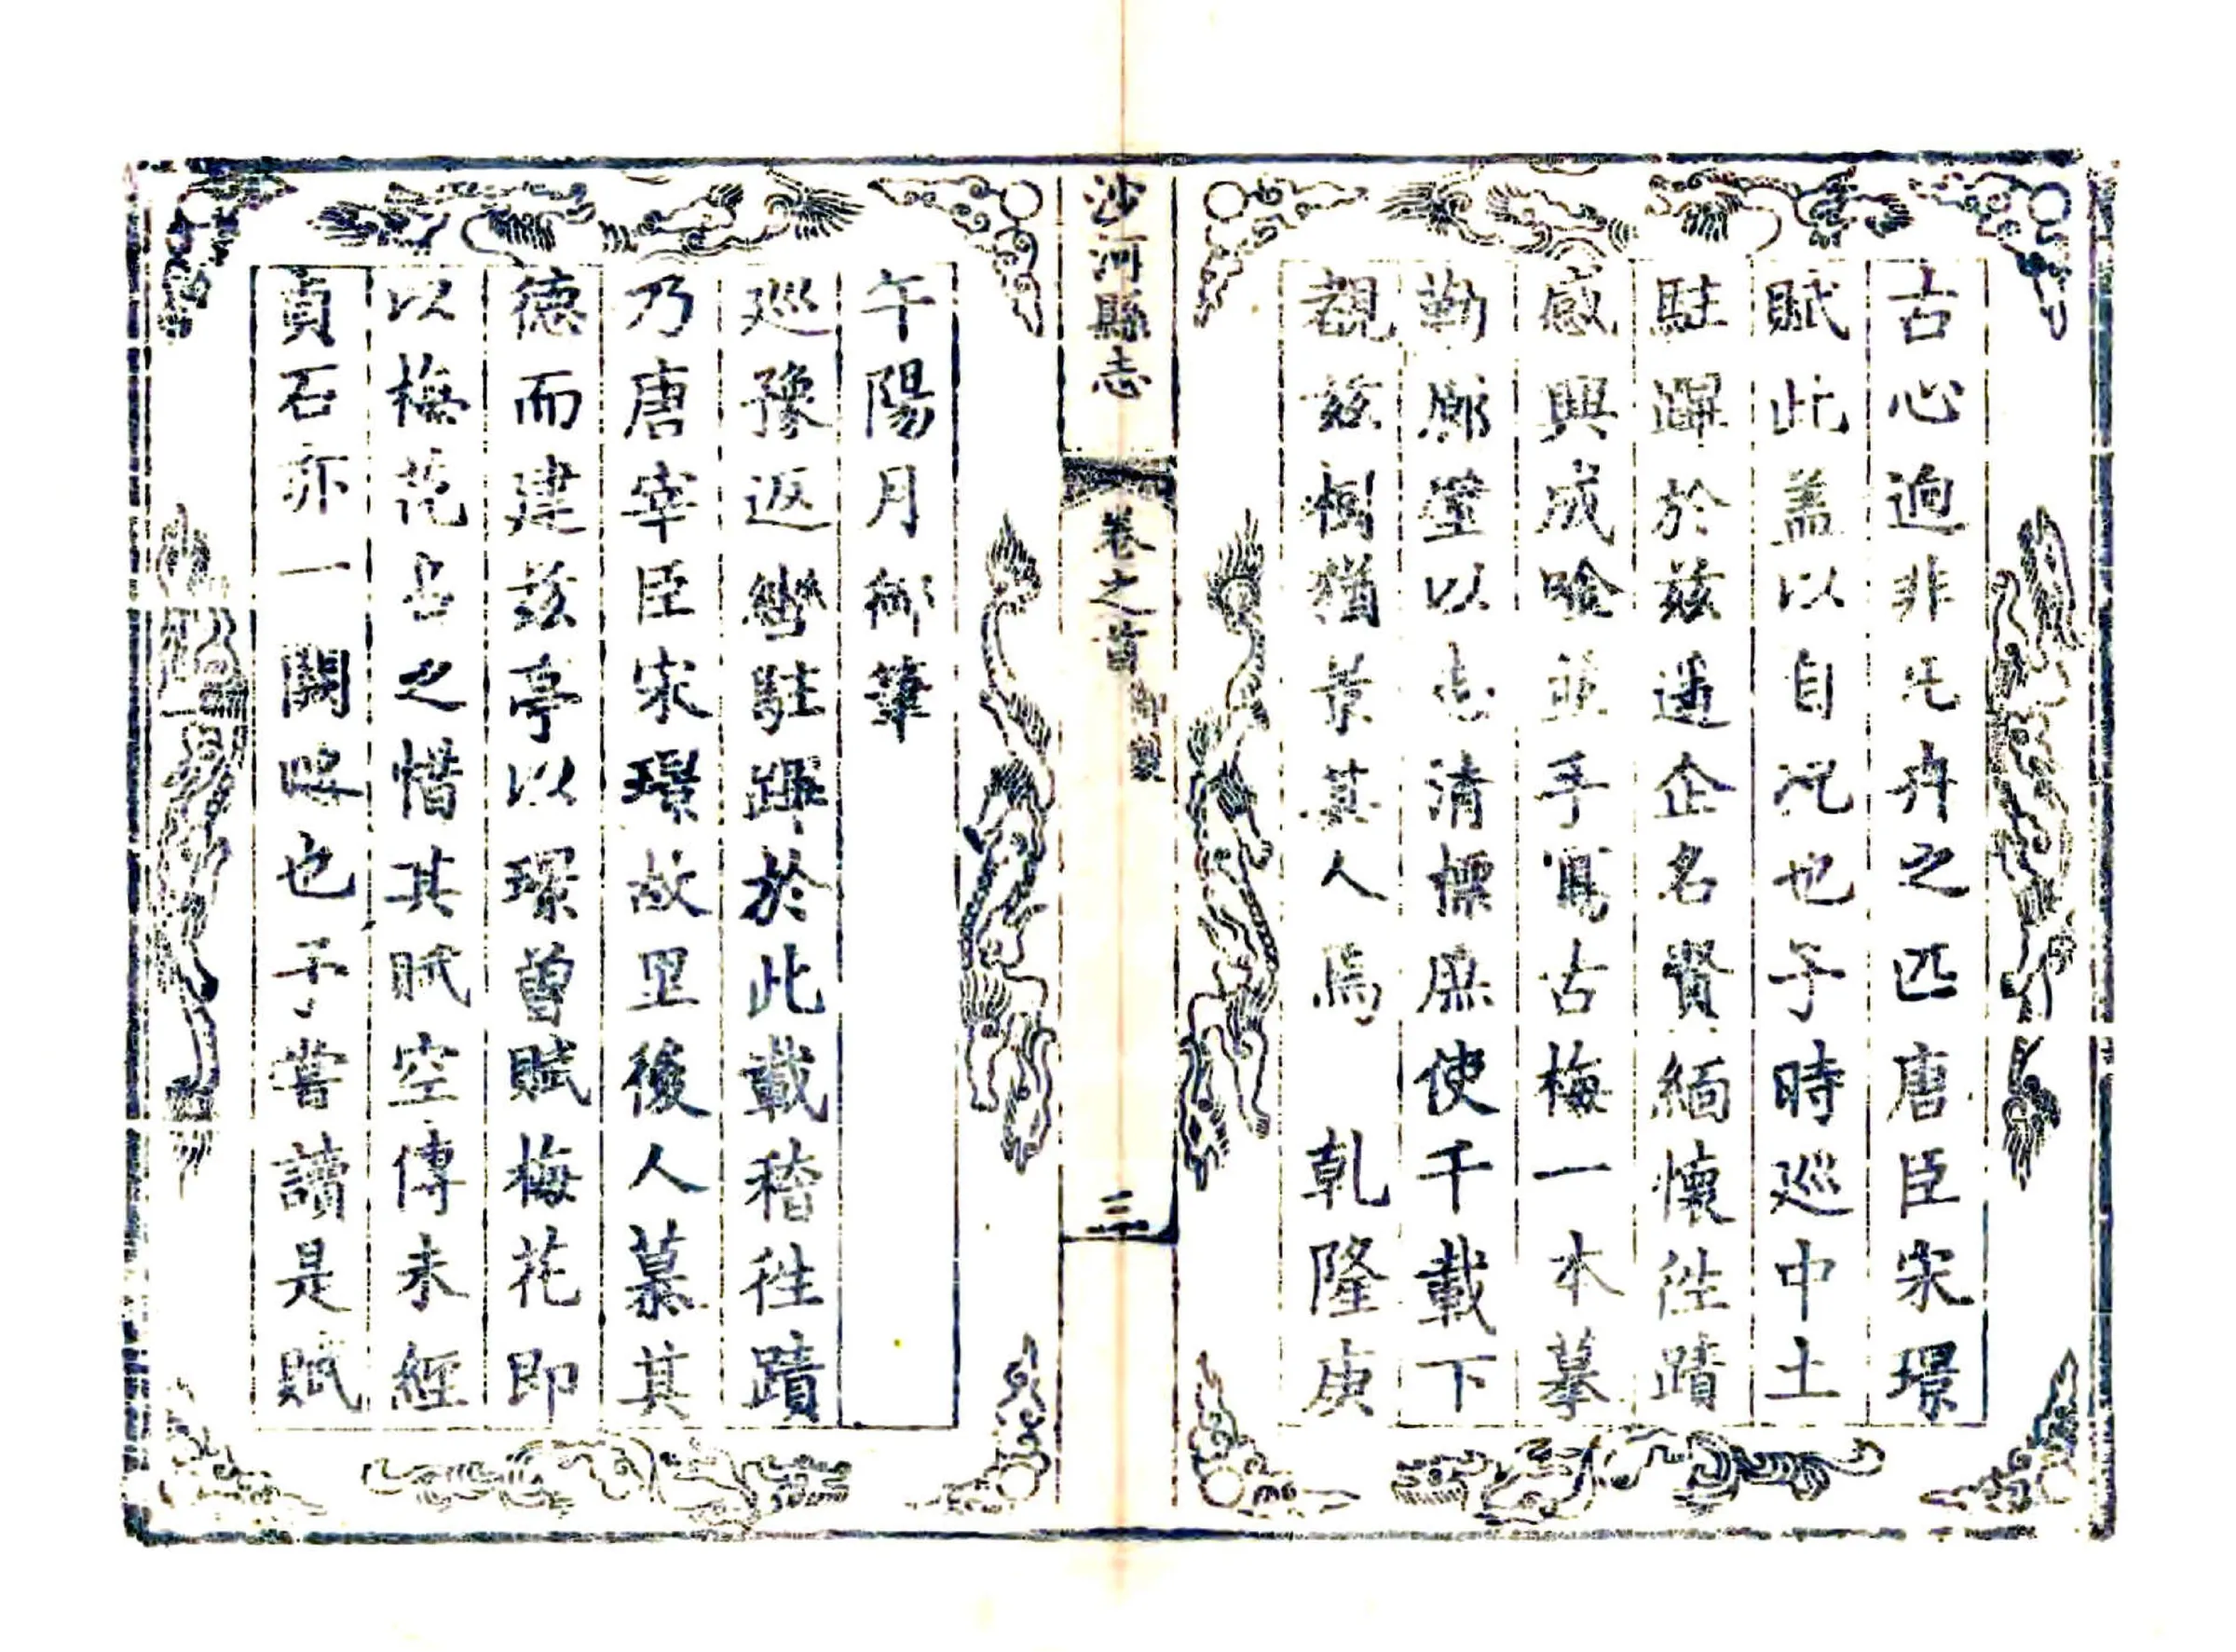 古心迥非凡卉之匹唐臣宋璟
賦此盖以自况也予時巡中土
駐蹕於兹遥企名賢緬懷往蹟
感興成吟並手寫古梅一本摹
勒廊壁以志清標庶使千載下
覩兹樹猶景其人焉 乾隆庚
沙河縣志 卷之首 御製 三
午陽月御筆
巡豫返轡駐蹕於此載稽往蹟
乃唐宰臣宋璟故里後人慕其
德而建兹亭以璟曾賦梅花即
以梅花名之惜其賦空傳未經
貞石亦一闕略也予嘗讀是賦